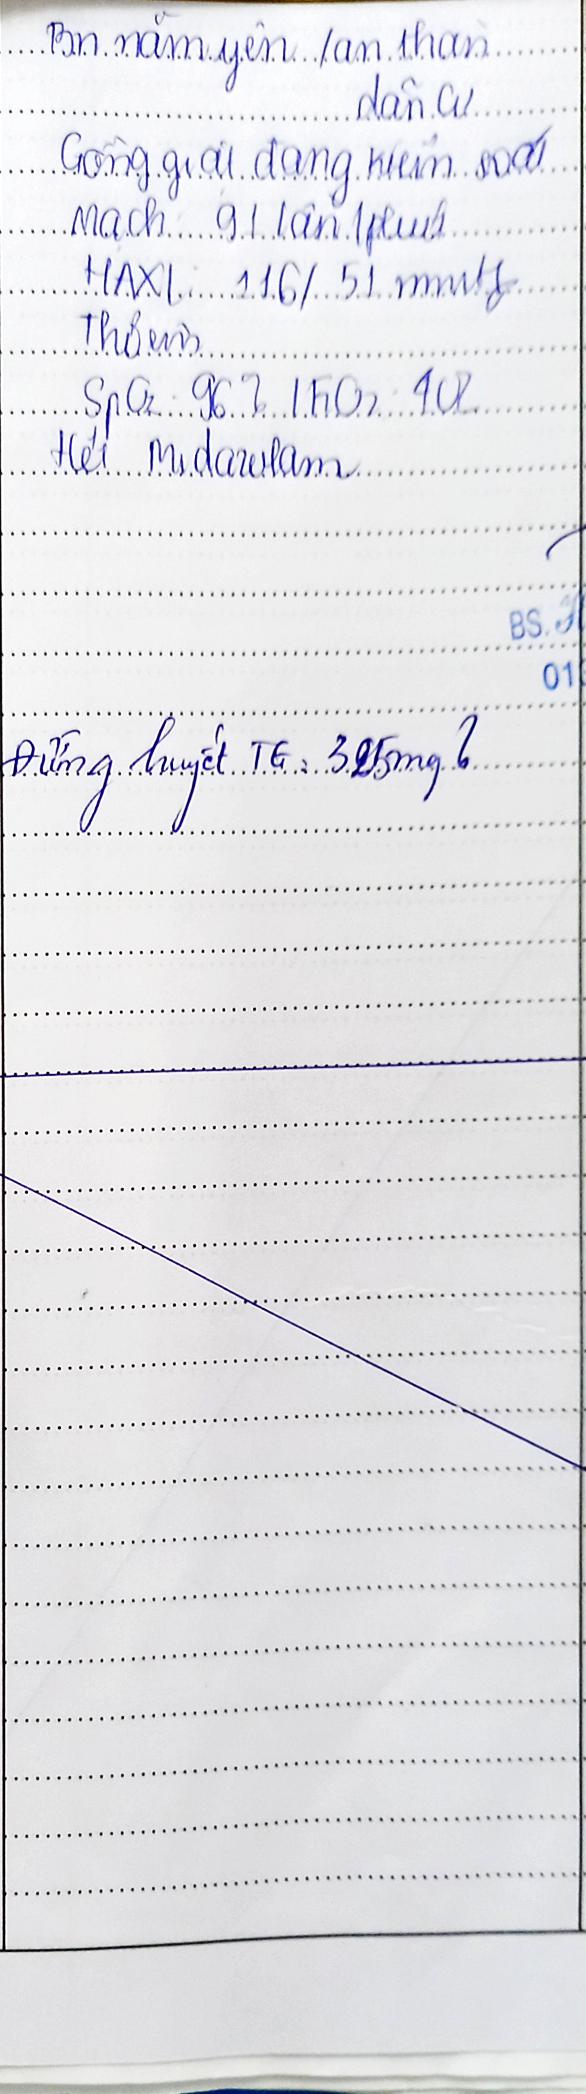 Bn nằm yên / an thần
dãn cơ
Gồng giật đang kiểm soát
Mạch 91 lần/phút
HAXL: 116/51 mmHg
Thở m
SpO2: 96% / FiO2: 40%
Hết Midazolam
BS.
01
Đường huyết TG: 325mg%